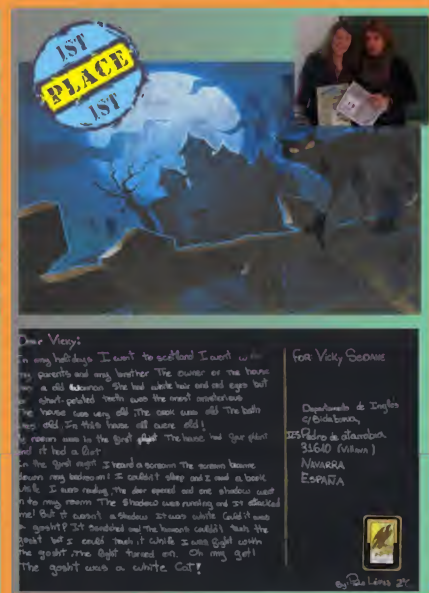 1ST
PLACE
1ST
Dear Vicky:
In my holidays I went to scotland I went with
my parents and my brother The owner or the house
was a old woman She had white hair and red eyes but
short-pointed teeth was the most misterious
The house was very old The cook was old The bath
was old In this house all were old!
My room was in the first The house had four
and it had a
In the first night I heard a scream The scream became
down my bedroom! I couldn't sleep and I read a book
While I was reading The door opened and one shadow went
in to my room The shadow was running and It attacked
me! But it wasn't a shadow It was white Could it was
a gosht? It The humans couldn't touch the
gosht but I could touch it While I was fight with
the gosht the light turned on. Oh my got!
The gosht was a white Cat!
For Vicky
Departamento de Inglés
C/Bidaburua,
IES Pedro de atarrabia
31610 (Villava)
NAVARRA
ESPAÑA
By: